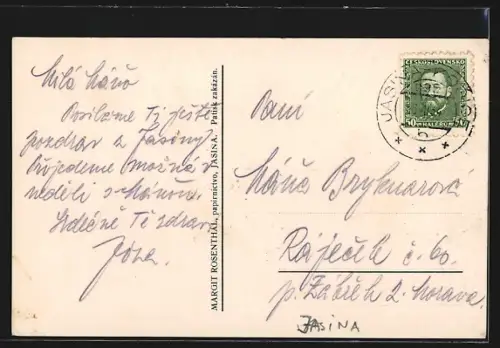 Milá Máňo
Posíláme Ti ještě
pozdrav z Jasiny
Přijedeme možná v
neděli s Mánou.
Srdečně Tě zdraví
Joža.
MARGIT ROSENTHAL, papírnictvo, JASINA. Patisk zakázán.
ČESKOSLOVENSKO
50 HALÉŘŮ 50
JASIŇA
Paní
Máňa Bryknarová
Ráječek č. 60.
p. Zábřeh z. Morava
JASINA